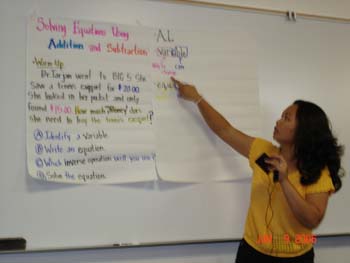 Solving Equations Using
Addition and Subtraction
Warm-Up
Dr. Tarjan went to BIG 5. She
saw a tennis racquet for $20.00
She looked in her pocket and only
found $15.00. How much money does
she need to buy the tennis racquet?
A Identify a variable
B Write an equation
C Which inverse operation will you use?
D Solve the equation
AL
Variable
can
9 2006